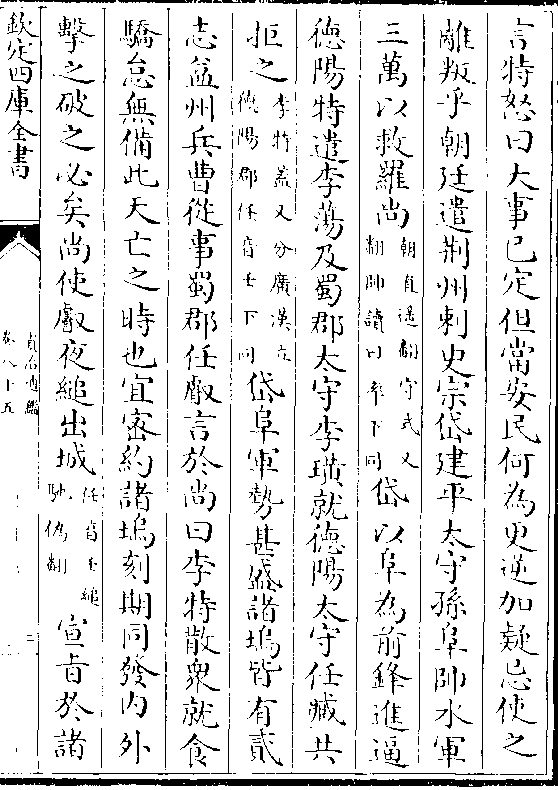 言特怒曰大事已定但當安民何為更逆加疑忌使之
離叛乎朝廷遣荆州刺史宗岱建平太守孫阜帥水軍
三萬以救羅尚朝直遥翻守式又翻帥讀曰率下同岱以阜為前鋒進逼
德陽特遣李蕩及蜀郡太守李璜就德陽太守任臧共
拒之李特蓋又分廣漢立德陽郡任音壬下同岱阜軍勢甚盛諸塢皆有貳
志益州兵曹從事蜀郡任叡言於尚曰李特散衆就食
驕怠無備此天亡之時也宜密約諸塢刻期同發内外
擊之破之必矣尚使叡夜縋出城任音壬縋馳偽翻宣旨於諸
欽定四庫全書
資治通鑑
卷八十五
三